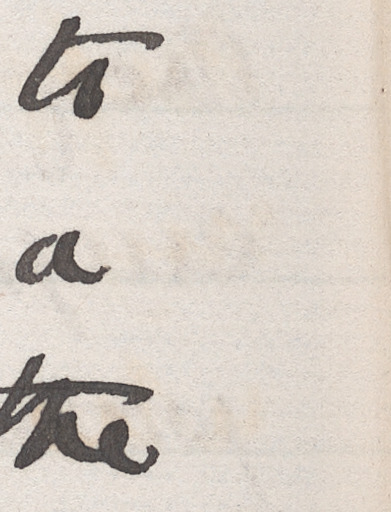 to
a
the